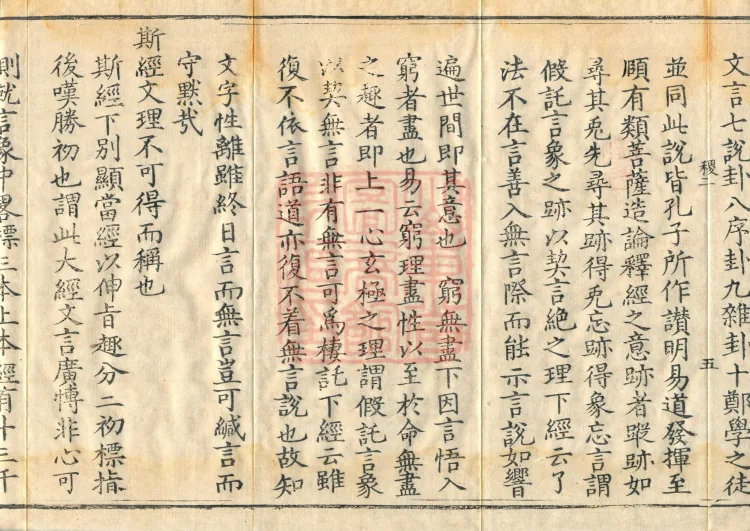 文言七說卦八序卦九雜卦十鄭學之徒
稷二
五
並同此說皆孔子所作讃明易道發揮至
頤有類菩薩造論釋經之意跡者蹤跡如
尋其兎先尋其跡得兎忘跡得象忘言謂
假託言象之跡以契言絶之理下經云了
法不在言善入無言際而能示言說如響
遍世間即其意也 窮無盡下因言悟入
窮者盡也易云窮理盡性以至於命無盡
之趣者即上一心玄極之理謂假託言象
以契無言非有無言可爲棲託下經云雖
復不依言語道亦復不着無言說也故知
文字性離雖終日言而無言豈可緘言而
守默㢤
斯經文理不可得而稱也
斯經下別顯當經以伸旨趣分二初標指
後嘆勝初也謂此大經文言廣愽非心可
則就言象中畧標三本上本經有十三千